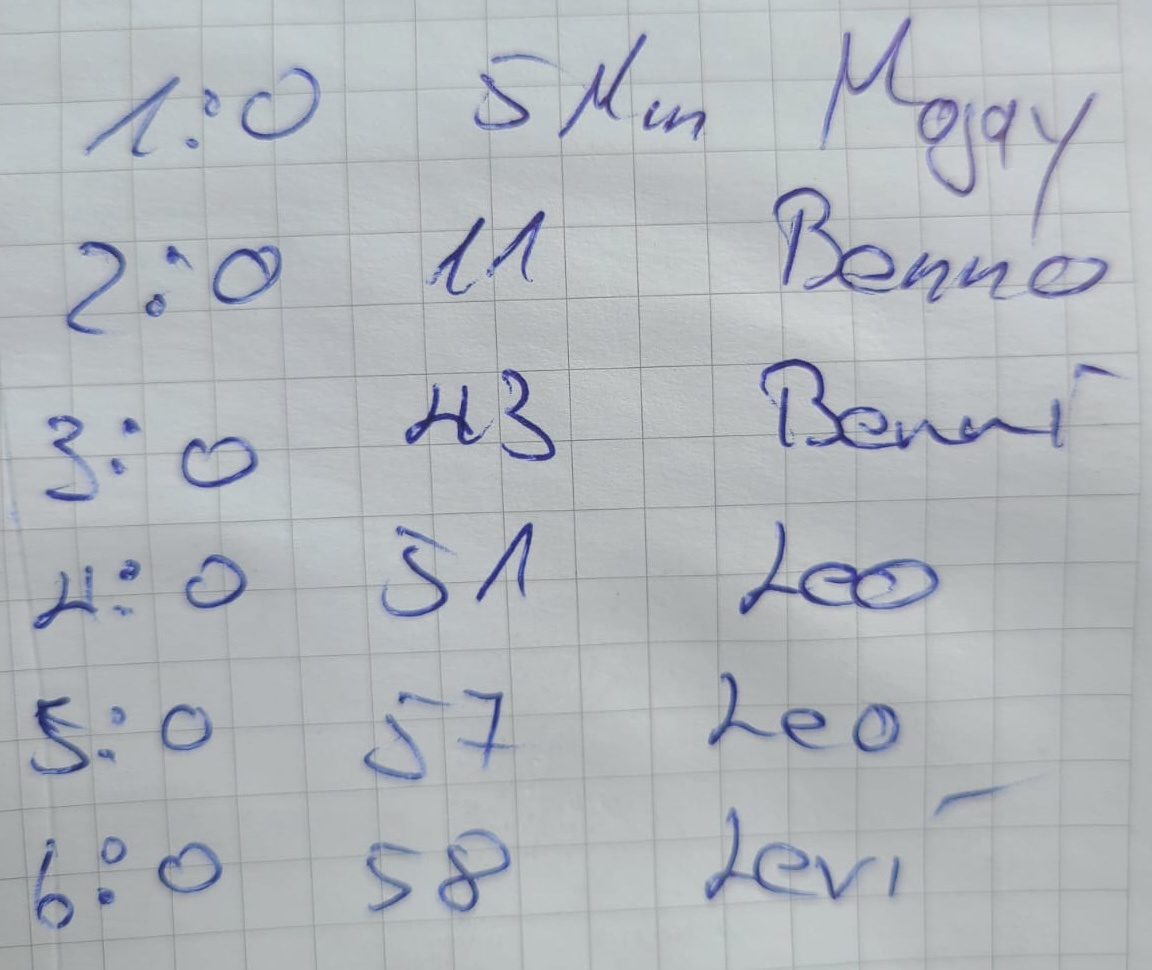 1:0 5 Min Mojay
2:0 11 Benno
3:0 43 Benni
4:0 51 Leo
5:0 57 Leo
6:0 58 Levi